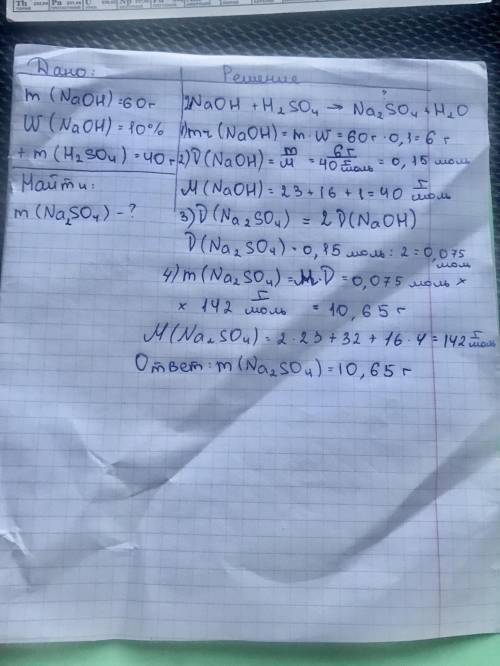 Дано:
m (NaOH) = 60 г
W (NaOH) = 10%
+ m (H₂SO₄) = 40 г
Найти:
m (Na₂SO₄) - ?
Решение
?
2NaOH + H₂SO₄ → Na₂SO₄ + H₂O
1) mч (NaOH) = m · W = 60 г · 0,1 = 6 г
2) υ (NaOH) = m/M = 6 г / 40 г/моль = 0,15 моль
M (NaOH) = 23 + 16 + 1 = 40 г/моль
3) υ (Na₂SO₄) = 2 υ (NaOH)
υ (Na₂SO₄) = 0,15 моль : 2 = 0,075 моль
4) m (Na₂SO₄) = M · υ = 0,075 моль ×
× 142 г/моль = 10,65 г
M (Na₂SO₄) = 2 · 23 + 32 + 16 · 4 = 142 г/моль
Ответ: m (Na₂SO₄) = 10,65 г